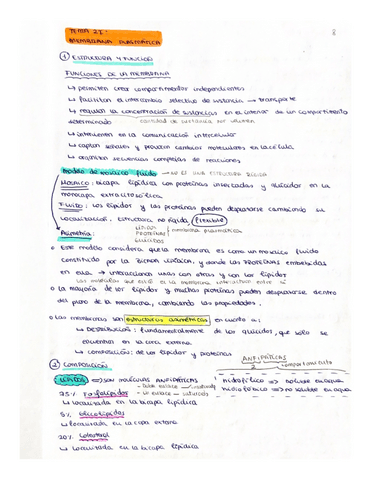 TEMA 21:
MEMBRANA PLASMÁTICA
8
① ESTRUCTURA Y FUNCIÓN
FUNCIONES DE LA MEMBRANA
↳ permiten crear compartimentos independientes
↳ facilitan el intercambio selectivo de sustancia → transporte
↳ regulan la concentración de sustancias en el interior de un compartimento
determinado cantidad de sustancia
↳ intervienen en la comunicación intercelular
↳ captan señales y provocan cambios moleculares en la célula
↳ organizan secuencias complejas de reacciones
Modelo de mosaico fluido → NO ES UNA ESTRUCTURA RÍGIDA
MOSAICO: bicapa lipídica con proteínas insertadas y glúcidos en la
monocapa extracitosólica
FLUIDO: los lípidos y las proteínas pueden desplazarse cambiando su
localización: estructura no rígida (flexible)
Asimetría: LÍPIDOS
PROTEÍNAS membrana plasmática
GLÚCIDOS
o Este modelo considera que la membrana es como un mosaico fluido
constituido por la BICAPA LIPÍDICA, y donde las PROTEÍNAS embebidas
en ella → interaccionan unas con otras y con los lípidos
Las moléculas que están en la membrana interactúan entre sí
o La mayoría de los lípidos y muchas proteínas pueden desplazarse dentro
del plano de la membrana, cambiando las propiedades.
o Las membranas son estructuras asimétricas en cuanto a:
↳ DISTRIBUCIÓN: fundamentalmente de los glúcidos, que solo se
encuentran en la cara externa.
↳ COMPOSICIÓN: de los lípidos y proteínas
② COMPOSICIÓN
ANFIPÁTICAS
2 comportamiento
LÍPIDOS ⟹ son MOLÉCULAS ANFIPÁTICAS
hidrofílico ⟹ soluble en agua
75% Fosfolípidos
hidrofóbico ⟹ no soluble en agua
↳ localizada en la bicapa lipídica
5% Glicolípidos
↳ localizada en la capa externa
20% Colesterol
↳ localizada en la bicapa lipídica